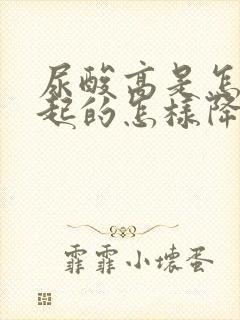 尿酸高是怎
起的怎樣降
霏霏小壞蛋